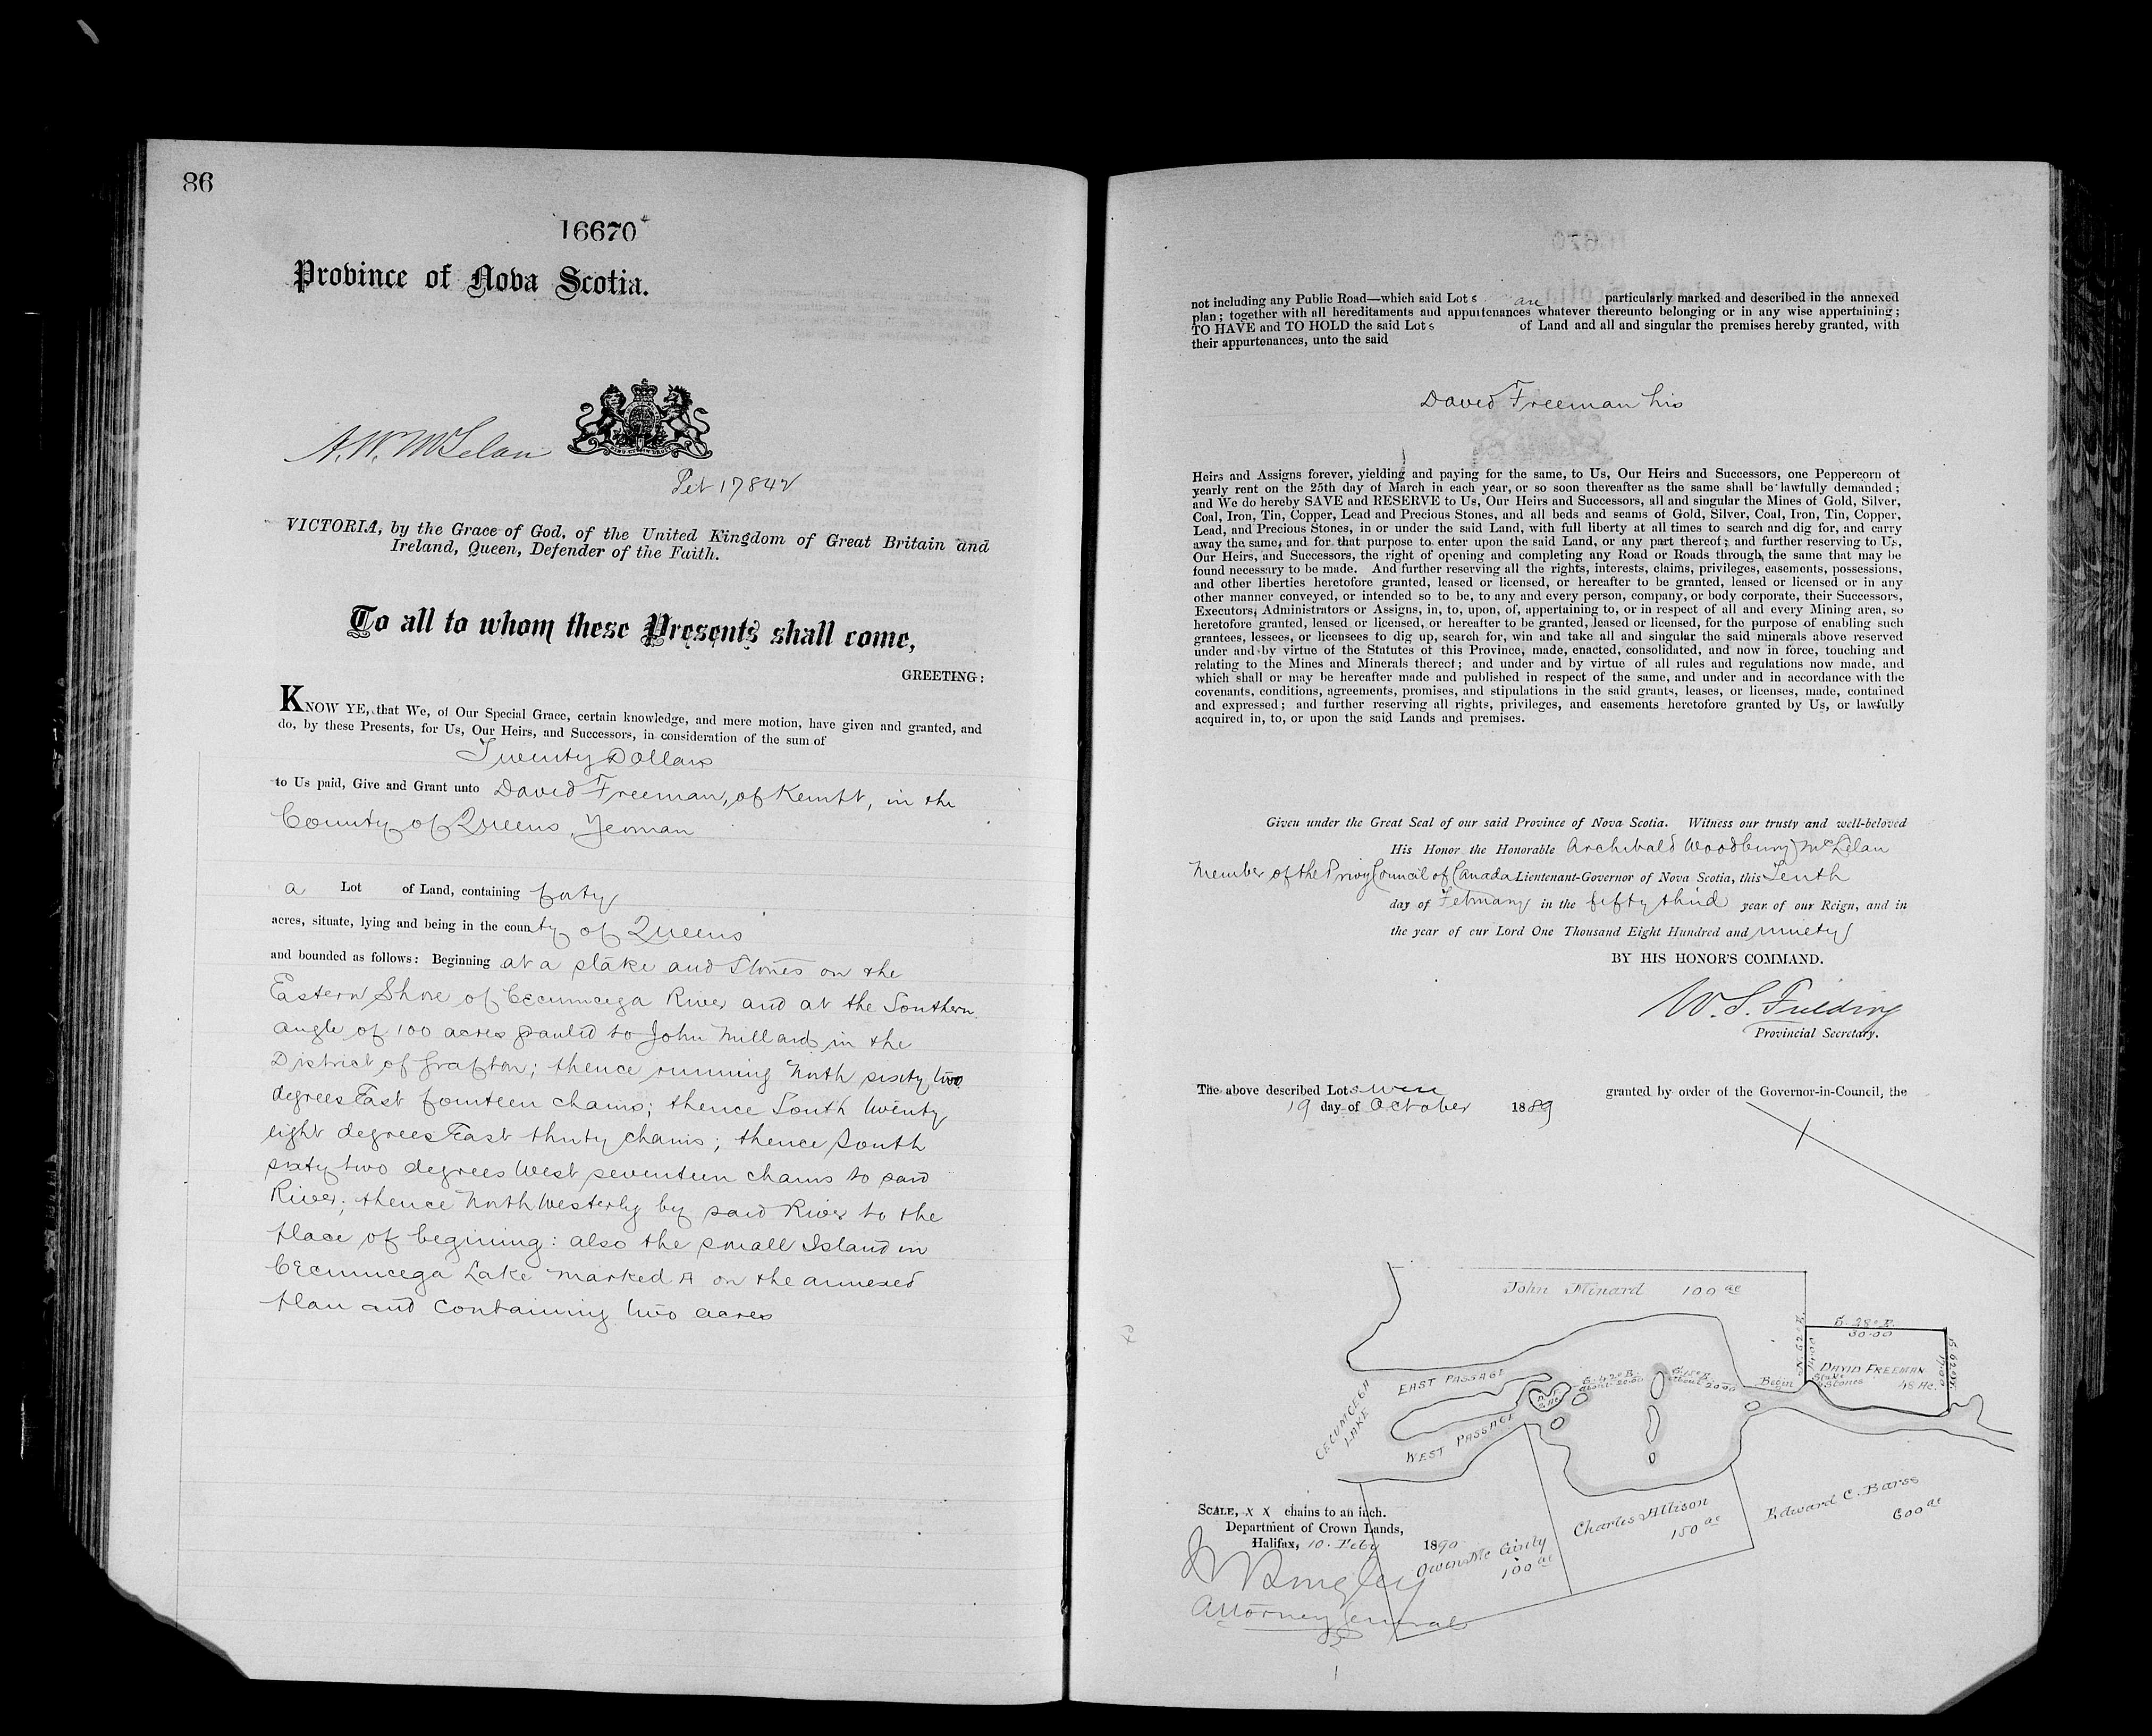 86
16670
Province of Nova Scotia.
A. W. McLelan
Pet 17842
VICTORIA, by the Grace of God, of the United Kingdom of Great Britain and
Ireland, Queen, Defender of the Faith.
To all to whom these Presents shall come,
GREETING:
KNOW YE, that We, of Our Special Grace, certain knowledge, and mere motion, have given and granted, and
do, by these Presents, for Us, Our Heirs, and Successors, in consideration of the sum of
Twenty Dollars
to Us paid, Give and Grant unto David Freeman, of Kempt, in the
County of Queens, Yeoman
a Lot of Land, containing forty
acres, situate, lying and being in the county of Queens
and bounded as follows: Beginning at a stake and Stones on the
Eastern Shore of Cecumcega River and at the Southern
angle of 100 acres granted to John Millard in the
District of Grafton; thence running North sixty two
degrees East fourteen chains; thence South twenty
eight degrees East thirty chains; thence South
sixty two degrees West seventeen chains to said
River; thence North Westerly by said River to the
place of begining: also the small Island in
Cecumcega Lake marked A on the annexed
plan and containing two acres
not including any Public Road—which said Lots are particularly marked and described in the annexed
plan; together with all hereditaments and appurtenances whatever thereunto belonging or in any wise appertaining;
TO HAVE and TO HOLD the said Lots of Land and all and singular the premises hereby granted, with
their appurtenances, unto the said
David Freeman his
Heirs and Assigns forever, yielding and paying for the same, to Us, Our Heirs and Successors, one Peppercorn of
yearly rent on the 25th day of March in each year, or so soon thereafter as the same shall be lawfully demanded;
and We do hereby SAVE and RESERVE to Us, Our Heirs and Successors, all and singular the Mines of Gold, Silver,
Coal, Iron, Tin, Copper, Lead and Precious Stones, and all beds and seams of Gold, Silver, Coal, Iron, Tin, Copper,
Lead, and Precious Stones, in or under the said Land, with full liberty at all times to search and dig for, and carry
away the same, and for that purpose to enter upon the said Land, or any part thereof; and further reserving to Us,
Our Heirs, and Successors, the right of opening and completing any Road or Roads through the same that may be
found necessary to be made. And further reserving all the rights, interests, claims, privileges, easements, possessions,
and other liberties heretofore granted, leased or licensed, or hereafter to be granted, leased or licensed or in any
other manner conveyed, or intended so to be, to any and every person, company, or body corporate, their Successors,
Executors, Administrators or Assigns, in, to, upon, of, appertaining to, or in respect of all and every Mining area, so
heretofore granted, leased or licensed, or hereafter to be granted, leased or licensed, for the purpose of enabling such
grantees, lessees, or licensees to dig up, search for, win and take all and singular the said minerals above reserved
under and by virtue of the Statutes of this Province, made, enacted, consolidated, and now in force, touching and
relating to the Mines and Minerals thereof; and under and by virtue of all rules and regulations now made, and
which shall or may be hereafter made and published in respect of the same, and under and in accordance with the
covenants, conditions, agreements, promises, and stipulations in the said grants, leases, or licenses, made, contained
and expressed; and further reserving all rights, privileges, and easements heretofore granted by Us, or lawfully
acquired in, to, or upon the said Lands and premises.
Given under the Great Seal of our said Province of Nova Scotia. Witness our trusty and well-beloved
His Honor the Honorable Archibald Woodbury McLelan
Member of the Privy Council of Canada Lieutenant-Governor of Nova Scotia, this Tenth
day of February in the fifty third year of our Reign, and in
the year of our Lord One Thousand Eight Hundred and ninety
BY HIS HONOR'S COMMAND.
W. S. Fielding
Provincial Secretary.
The above described Lots were granted by order of the Governor-in-Council, the
19 day of October 1889
John Minard 100 ac
N. 62° E.
14.00
S. 28° E.
30.00
S 62° W.
17.00
DAVID FREEMAN
48 Ac.
Stake
& Stones
Begin
EAST PASSAGE
WEST PASSAGE
CECUMCEGA
LAKE
about 20.00
about 20.00
SCALE, X X chains to an inch.
Department of Crown Lands,
Halifax, 10. Feby 1890
Owen Mc Ginty
100 ac
Charles Allison
150 ac
Edward C. Barss
600 ac
Attorney General